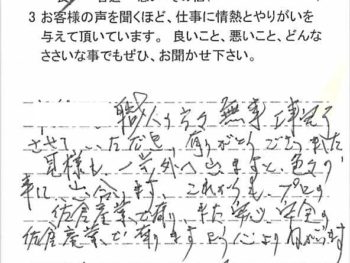 3 お客様の声を聞くほど、仕事に情熱とやりがいを
与えて頂いています。良いこと、悪いこと、どんな
ささいな事でもぜひ、お聞かせ下さい。
職人方々無事工事完了
させていただき、有りがとうございました
皆様も、一歩外へ出ますと、色々な
事に、出合います、これからも、プロの
佐倉産業で有り、また安心、安全の
佐倉産業、で有りますよう心より ねがいます